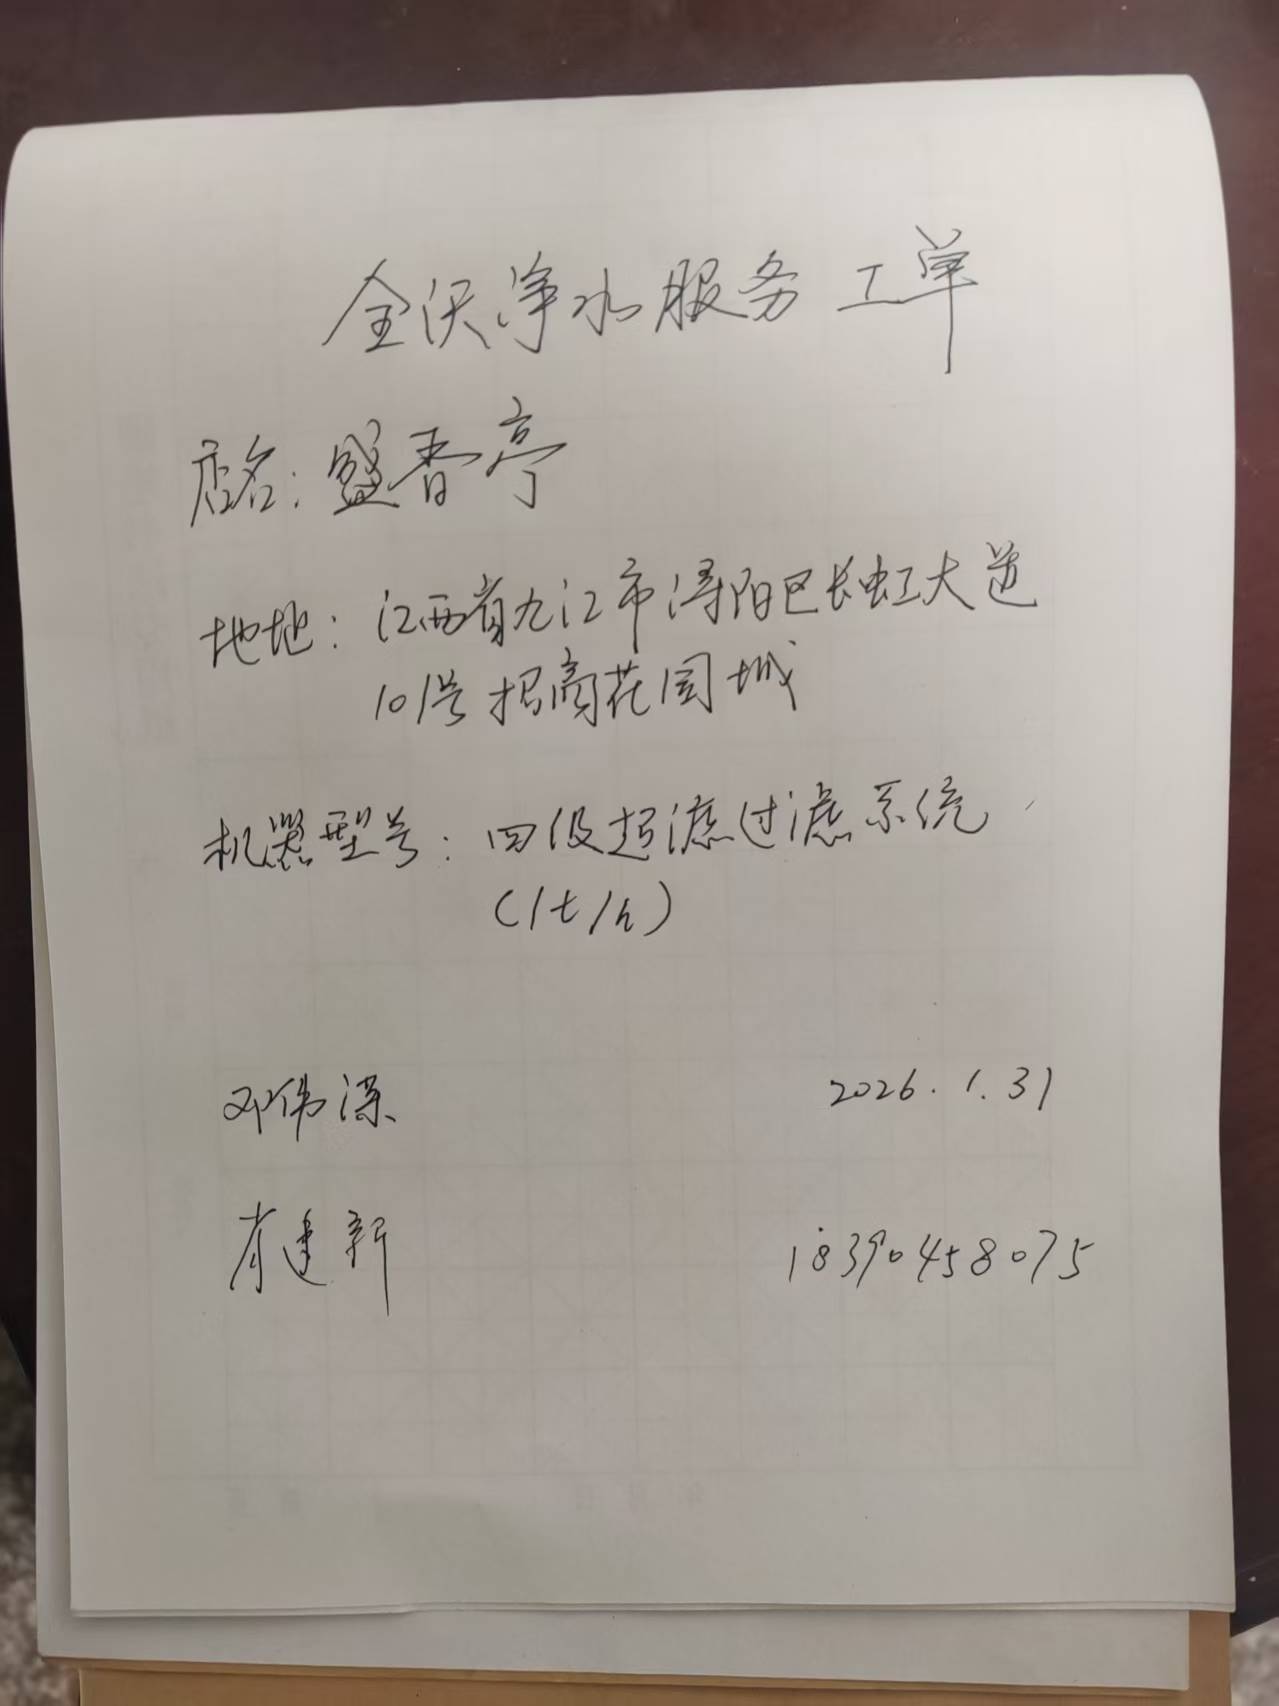 全沃净水服务工单
店名：盛香亭
地址：江西省九江市浔阳区长虹大道
101号招商花园城
机器型号：四级超滤过滤系统
（1t/h）
邓伟深 2026.1.31
肖建新 18390458075